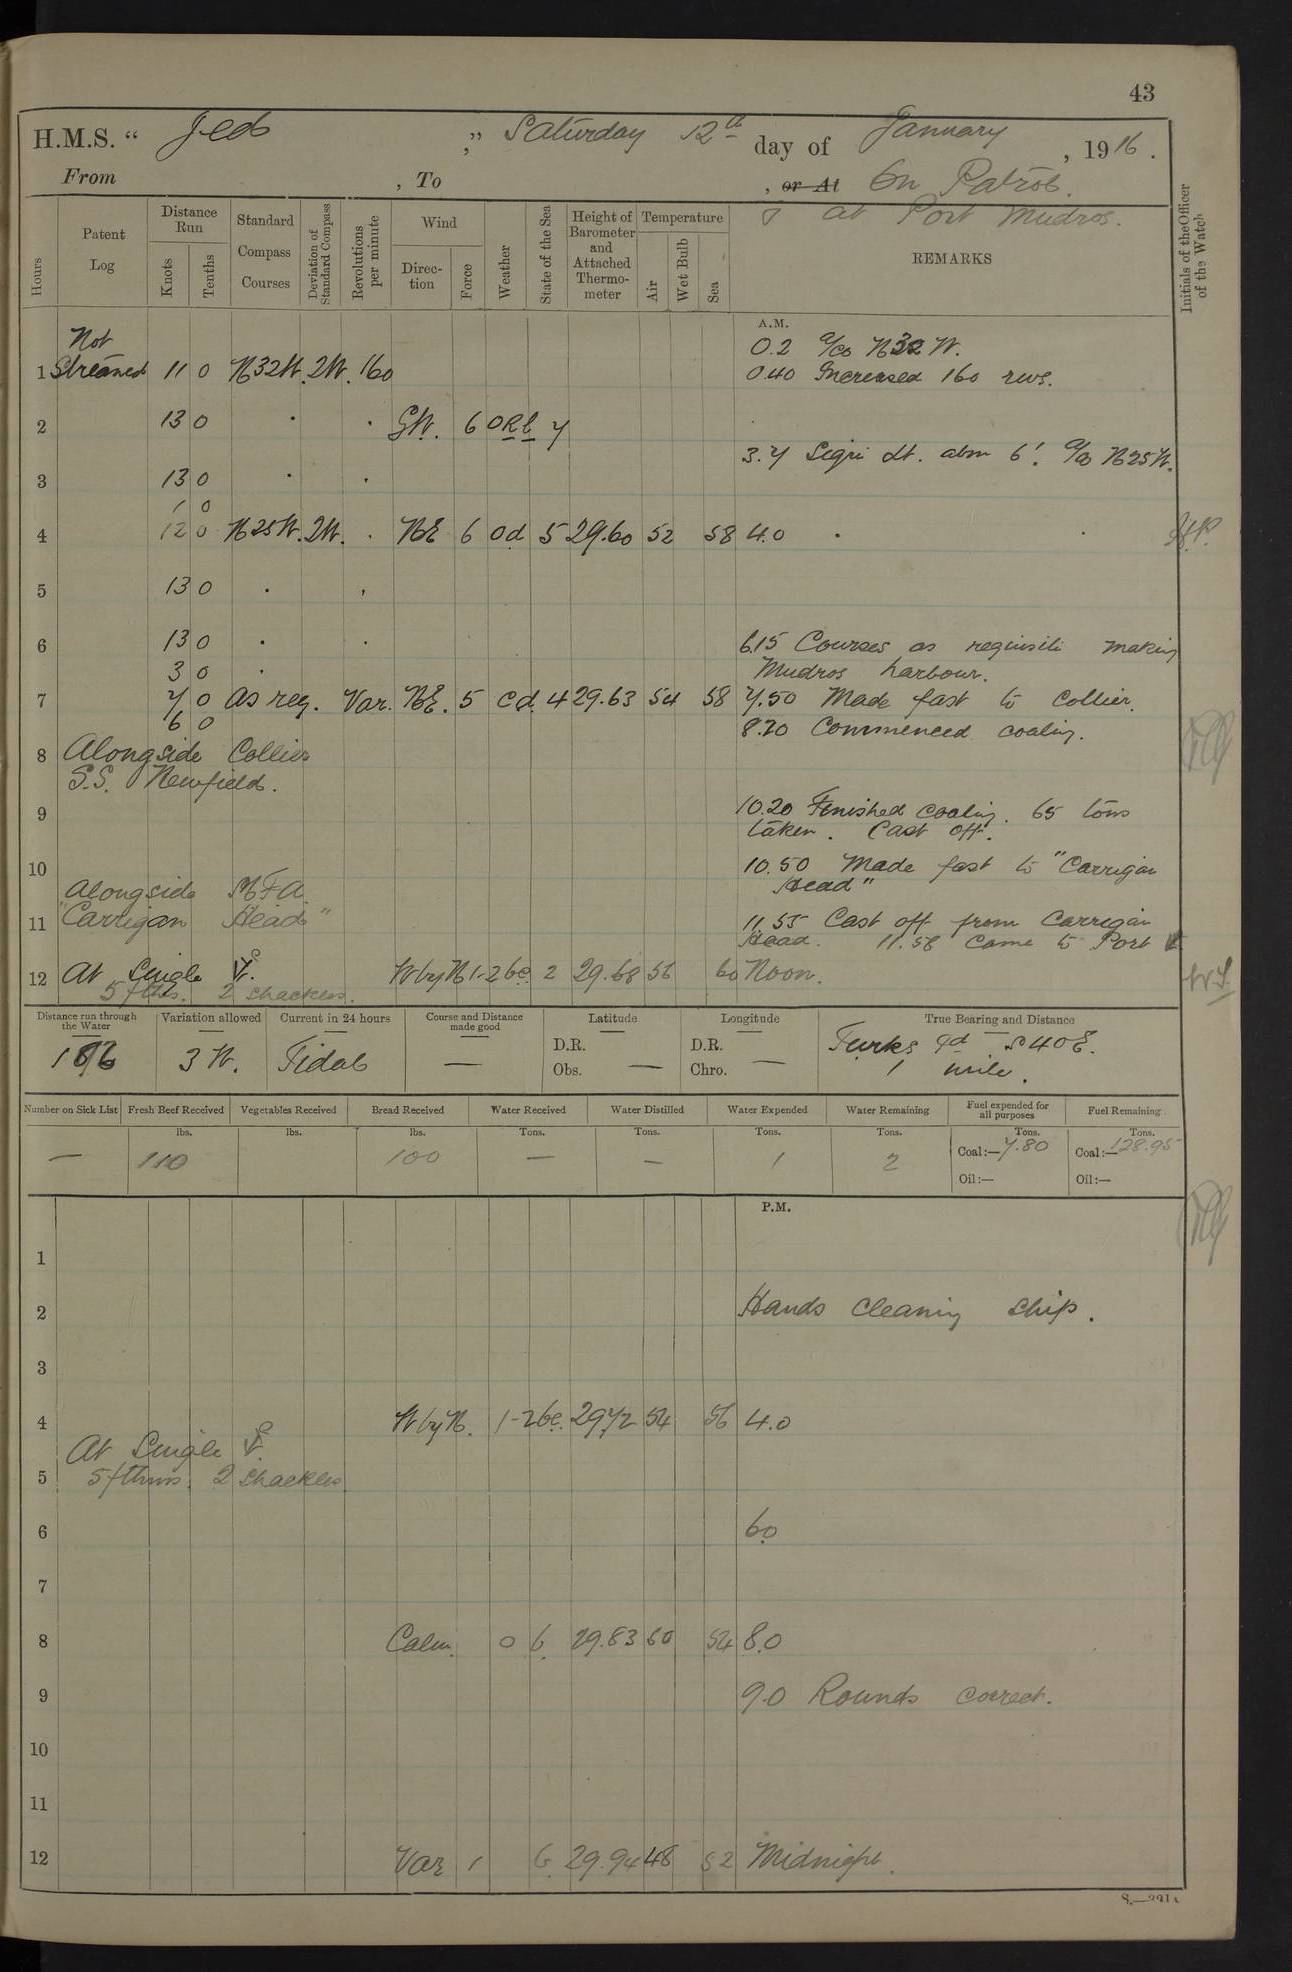 43
H.M.S. "Jed", Saturday 12th day of January, 1916.
From , To , or At On Patrol.
& at Port Mudros.
Hours
Patent Log
Distance Run
Knots
Tenths
Standard Compass Courses
Deviation of Standard Compass
Revolutions per minute
Wind
Direction
Force
Weather
State of the Sea
Height of Barometer and Attached Thermometer
Temperature
Air
Wet Bulb
Sea
REMARKS
Initials of the Officer of the Watch
A.M.
Not
0.2 a/co N32W.
1 Streamed 11 0 N32W. 2W. 160
0.40 Increased 160 revs.
2 13 0 . . 6 ORl 4
3.4 Sigri Lt. abm 6'. a/co N25W.
3 13 0 . .
1 0
4 12 0 N25W. 2W. . NE 6 od 5 29.60 52 58 4.0
5 13 0 . .
6 13 0 . .
6.15 Courses as requisite making
3 0 . Mudros harbour.
7 7 0 as req. Var. NE. 5 cd. 4 29.63 54 58 7.50 Made fast to Collier.
6 0
8.20 Commenced coaling.
8 Alongside Collier
S.S. Newfield.
9
10.20 Finished coaling. 65 tons
taken. Cast off.
10
10.50 Made fast to "Carrigan
Head"
Alongside RFA
11 "Carrigan Head"
11.55 Cast off from Carrigan
Head. 11.58 Came to Port ⚓
12 At Single ⚓. W by N 1-2 bc. 2 29.68 56 60 Noon.
5 fths. 2 shackles.
Distance run through the Water
Variation allowed
Current in 24 hours
Course and Distance made good
Latitude
Longitude
True Bearing and Distance
186 3 W. Tidal — D.R. D.R. Turks Hd S40E.
Obs. — Chro. — 1 mile.
Number on Sick List
Fresh Beef Received
Vegetables Received
Bread Received
Water Received
Water Distilled
Water Expended
Water Remaining
Fuel expended for all purposes
Fuel Remaining
lbs. lbs. lbs. Tons. Tons. Tons. Tons. Tons. Tons.
— 110 100 — — 1 2 Coal:— 7.80 Coal:— 128.95
Oil:— Oil:—
P.M.
1
2 Hands cleaning ship.
3
4 W by N. 1-2 bc. 29.72 54 56 4.0
At Single ⚓.
5 5 fthms. 2 shackles
6 6.0
7
8 Calm. 0 b. 29.83 50 54 8.0
9 9.0 Rounds correct.
10
11
12 Var 1 b. 29.94 48 52 Midnight.